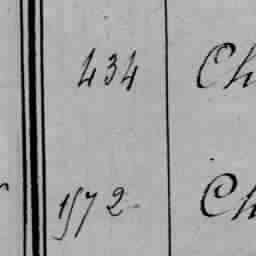 434 Ch
1572 Ch